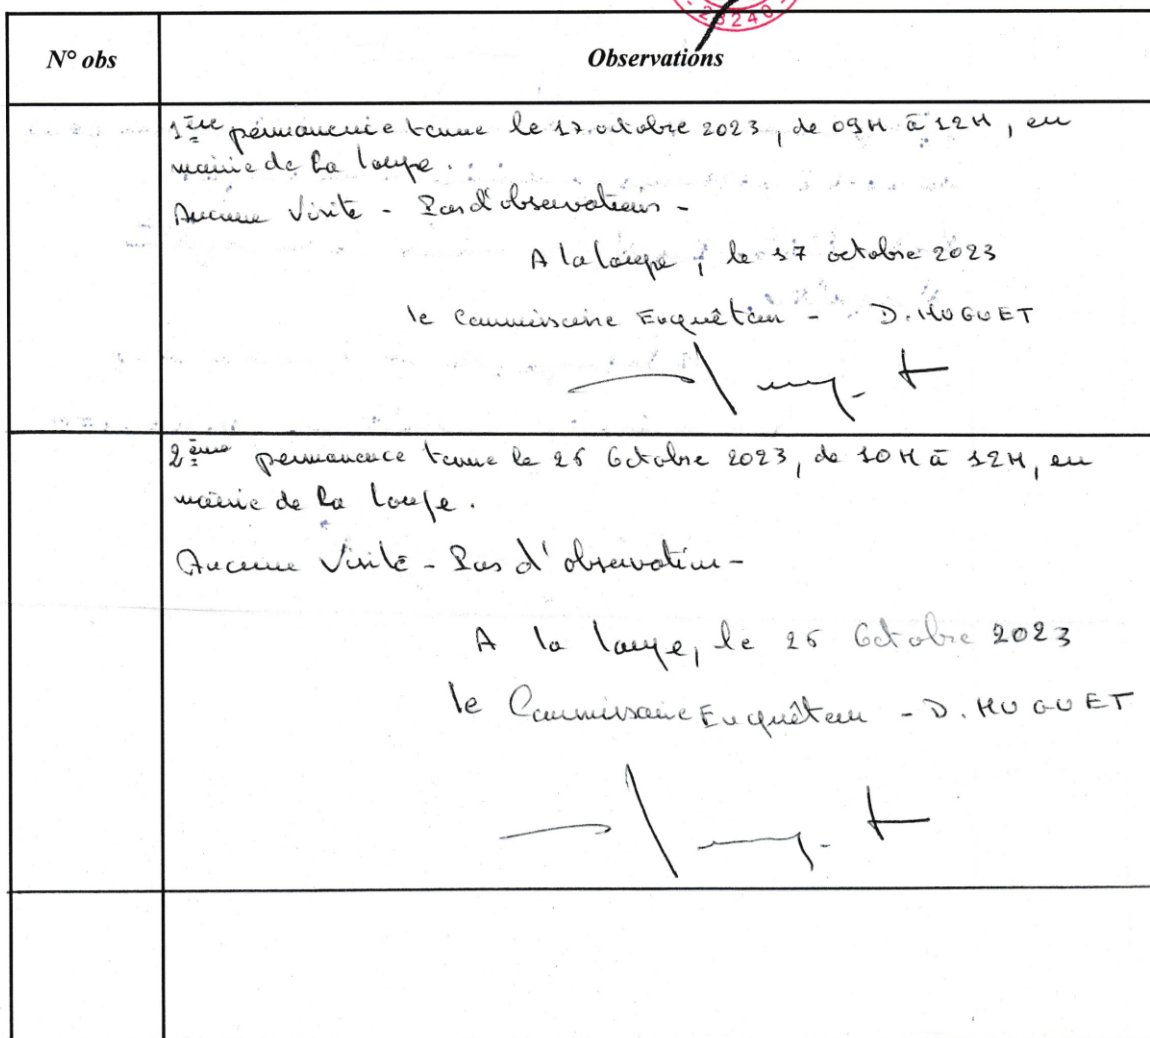 28240
N° obs
Observations
1ère permanence tenue le 17 octobre 2023, de 09H à 12H, en
mairie de La Loupe.
Aucune Visite - Pas d'observations -
A la Loupe, le 17 octobre 2023
le Commissaire Enquêteur - D. HUGUET
2ème permanence tenue le 26 Octobre 2023, de 10H à 12H, en
mairie de La Loupe.
Aucune Visite - Pas d'observation -
A la Loupe, le 26 Octobre 2023
le Commissaire Enquêteur - D. HUGUET